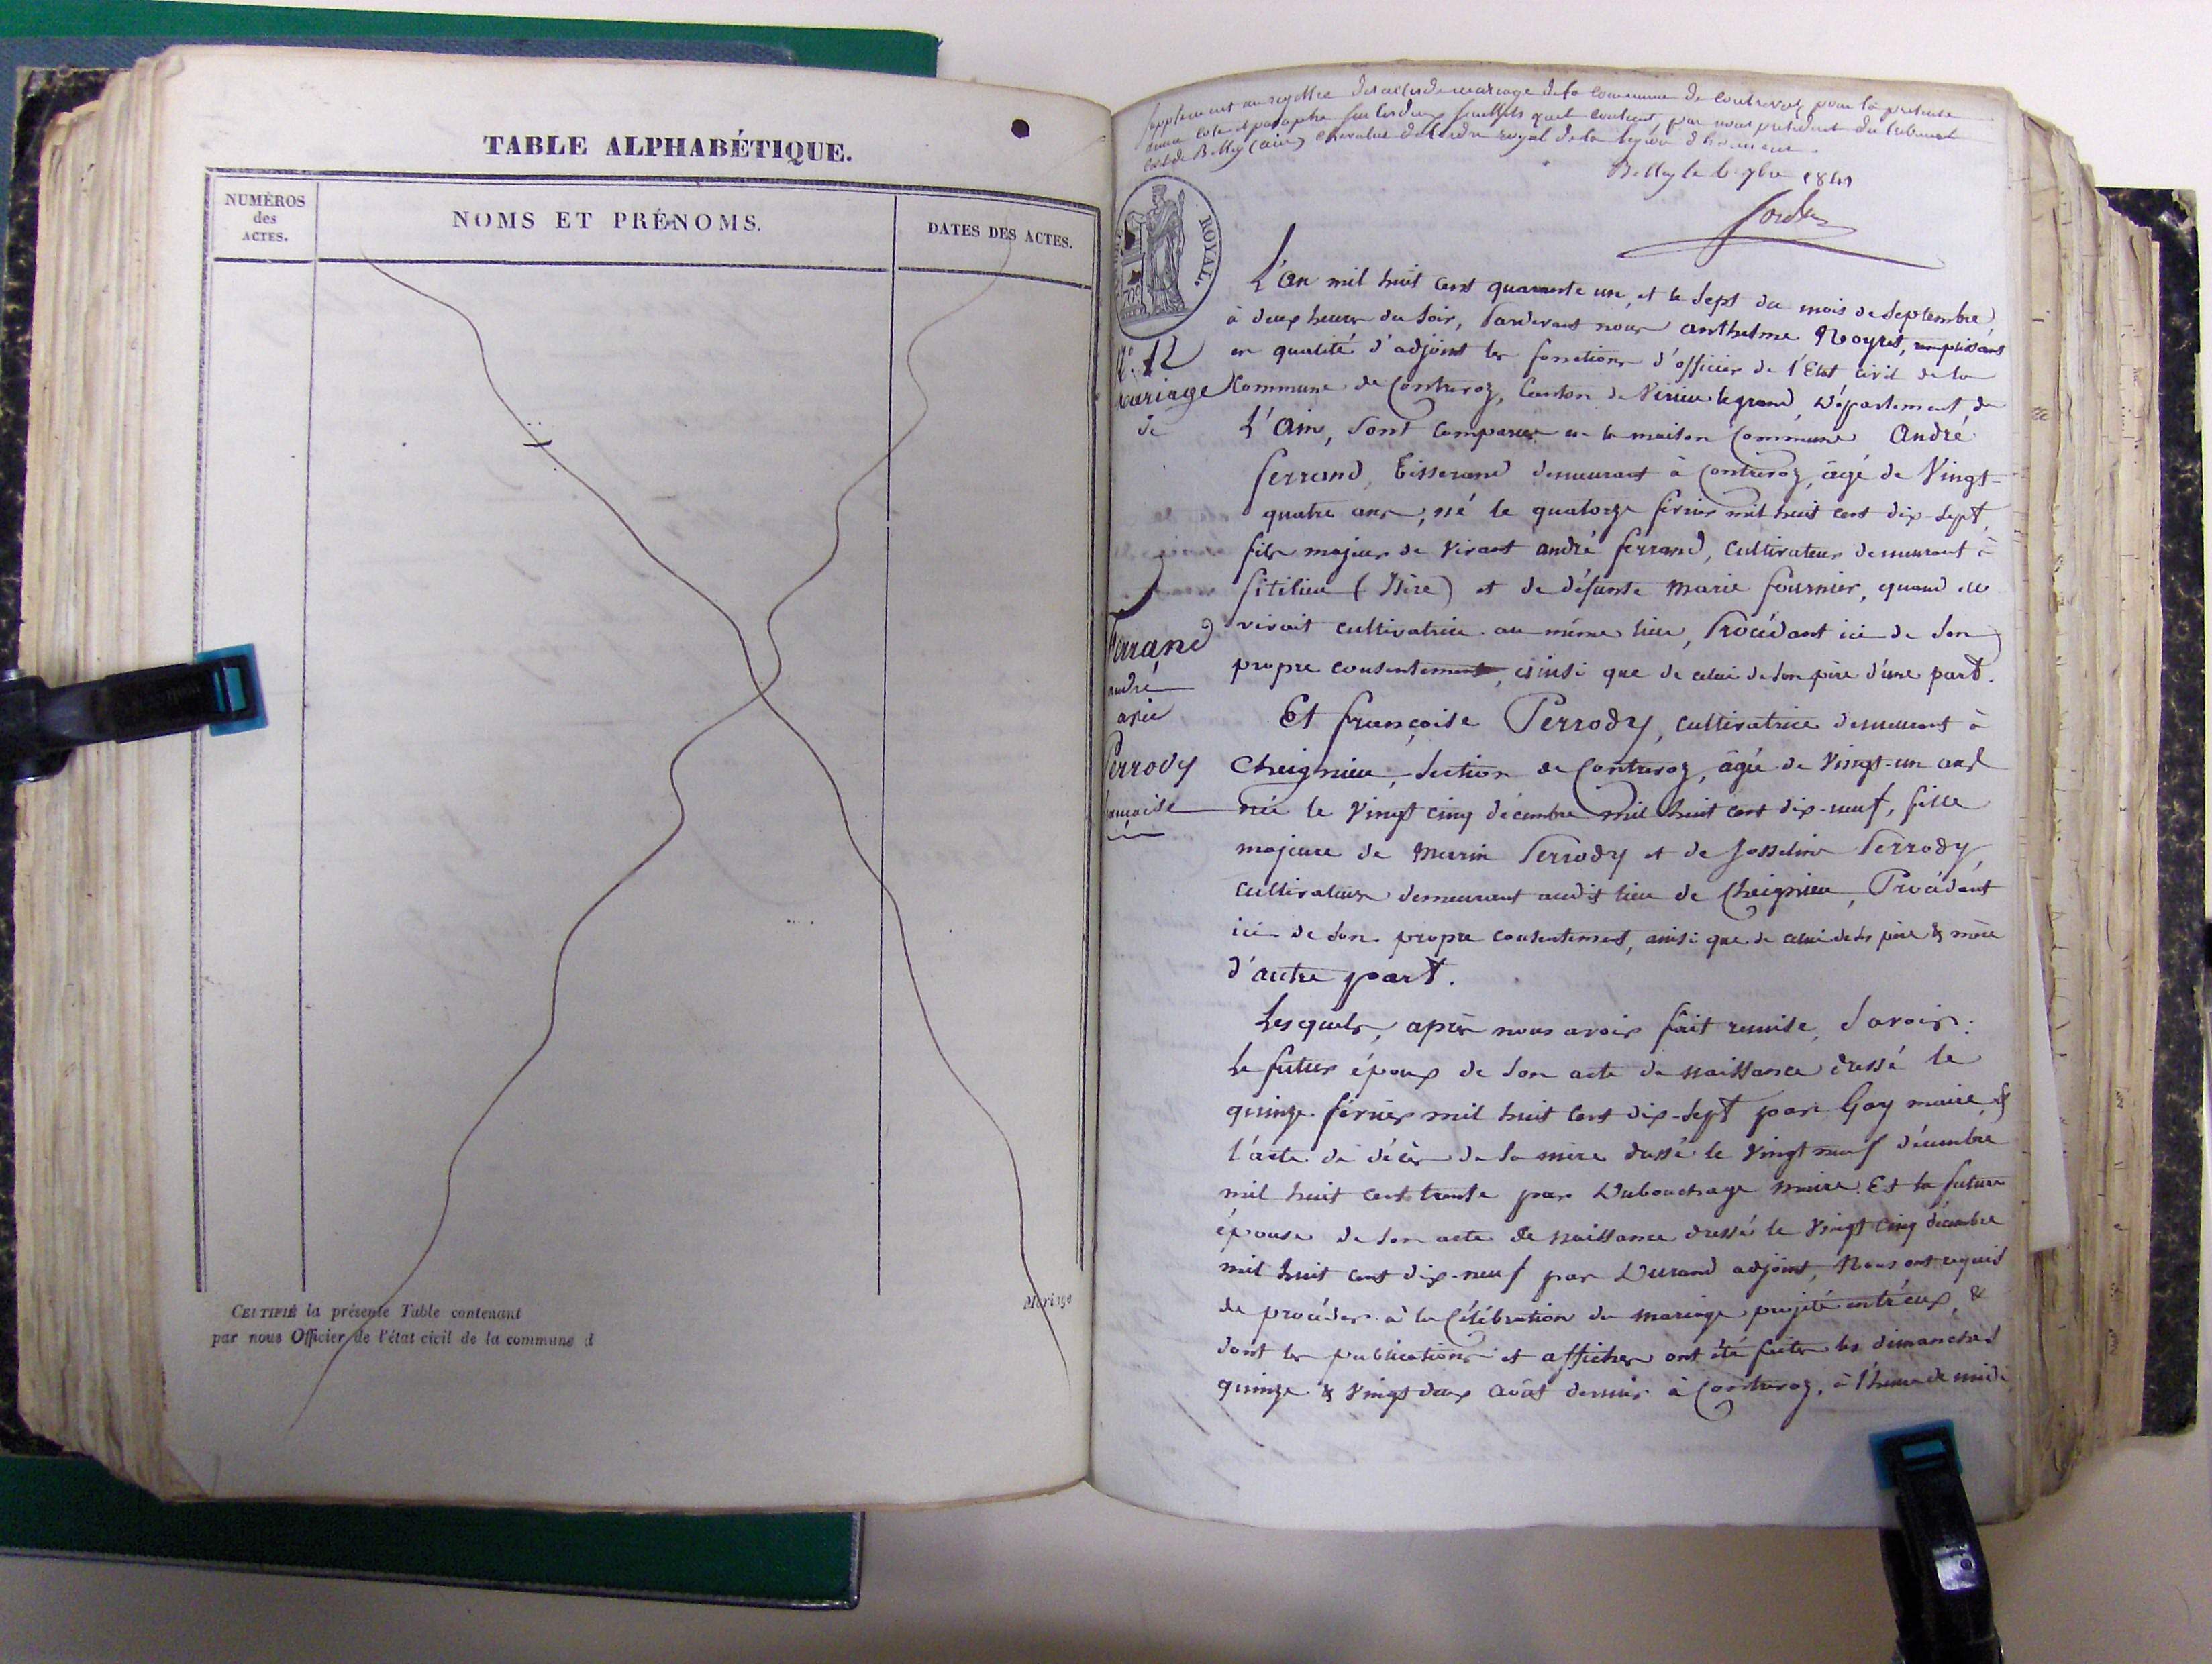 TABLE ALPHABÉTIQUE.
NUMÉROS
des
ACTES.
NOMS ET PRÉNOMS.
DATES DES ACTES.
CERTIFIÉ la présente Table contenant
par nous Officier de l'état civil de la commune d
Mariage
Supplément au registre des actes de mariage de la commune de Contrevoz pour la présente
année coté et paraphé sur les deux feuillets qu'il contient, par nous président du tribunal
civil de Belley (ain) chevalier de l'ordre royal de la légion d'honneur.
Belley le 6 7bre 1841
ROYAL.
L'an mil huit cent quarante un, et le sept du mois de septembre,
à deux heures du soir, Pardevant nous anthelme Noyret, remplissant
en qualité d'adjoint les fonctions d'officier de l'Etat civil de la
Commune de Contrevoz, Canton de Virieu legrand, Département de
L'Ain, sont comparus en la maison Commune André
ferrand, tisserand demeurant à Contrevoz, âgé de Vingt-
quatre ans, né le quatorze février mil huit cent dix-sept,
fils majeur de vivant andré ferrand, cultivateur demeurant à
fitilieu (Isère) et de défunte marie fournier, quand elle
vivait cultivatrice au même lieu, Procédant ici de son
propre consentement, ainsi que de celui de son père d'une part.
Et françoise Perrody, cultivatrice demeurant à
Cheignieu, section de Contrevoz, âgée de vingt-un ans
née le vingt cinq décembre mil huit cent dix-neuf, fille
majeure de Merrin Perrody et de Josseline Perrody,
cultivateurs demeurant audit lieu de Cheignieu, Procédant
ici de son propre consentement, ainsi que de celui de ses père & mère
d'autre part.
Lesquels, après nous avoir fait remise, savoir:
Le futur époux de son acte de naissance dressé le
quinze février mil huit cent dix-sept par Gay maire, &
l'acte de décès de sa mère dressé le vingt neuf décembre
mil huit cent trente par Dubouchage maire. Et la future
épouse de son acte de naissance dressé le vingt cinq décembre
mil huit cent dix-neuf par Durand adjoint, Nous ont requis
de procéder à la Célébration du mariage projeté entr'eux, &
dont les publications et affiches ont été faites les dimanches
quinze & vingt deux août dernier à Contrevoz, à l'heure de midi
N.° 12
Mariage
de
Ferrand
andré
avec
Perrody
françoise